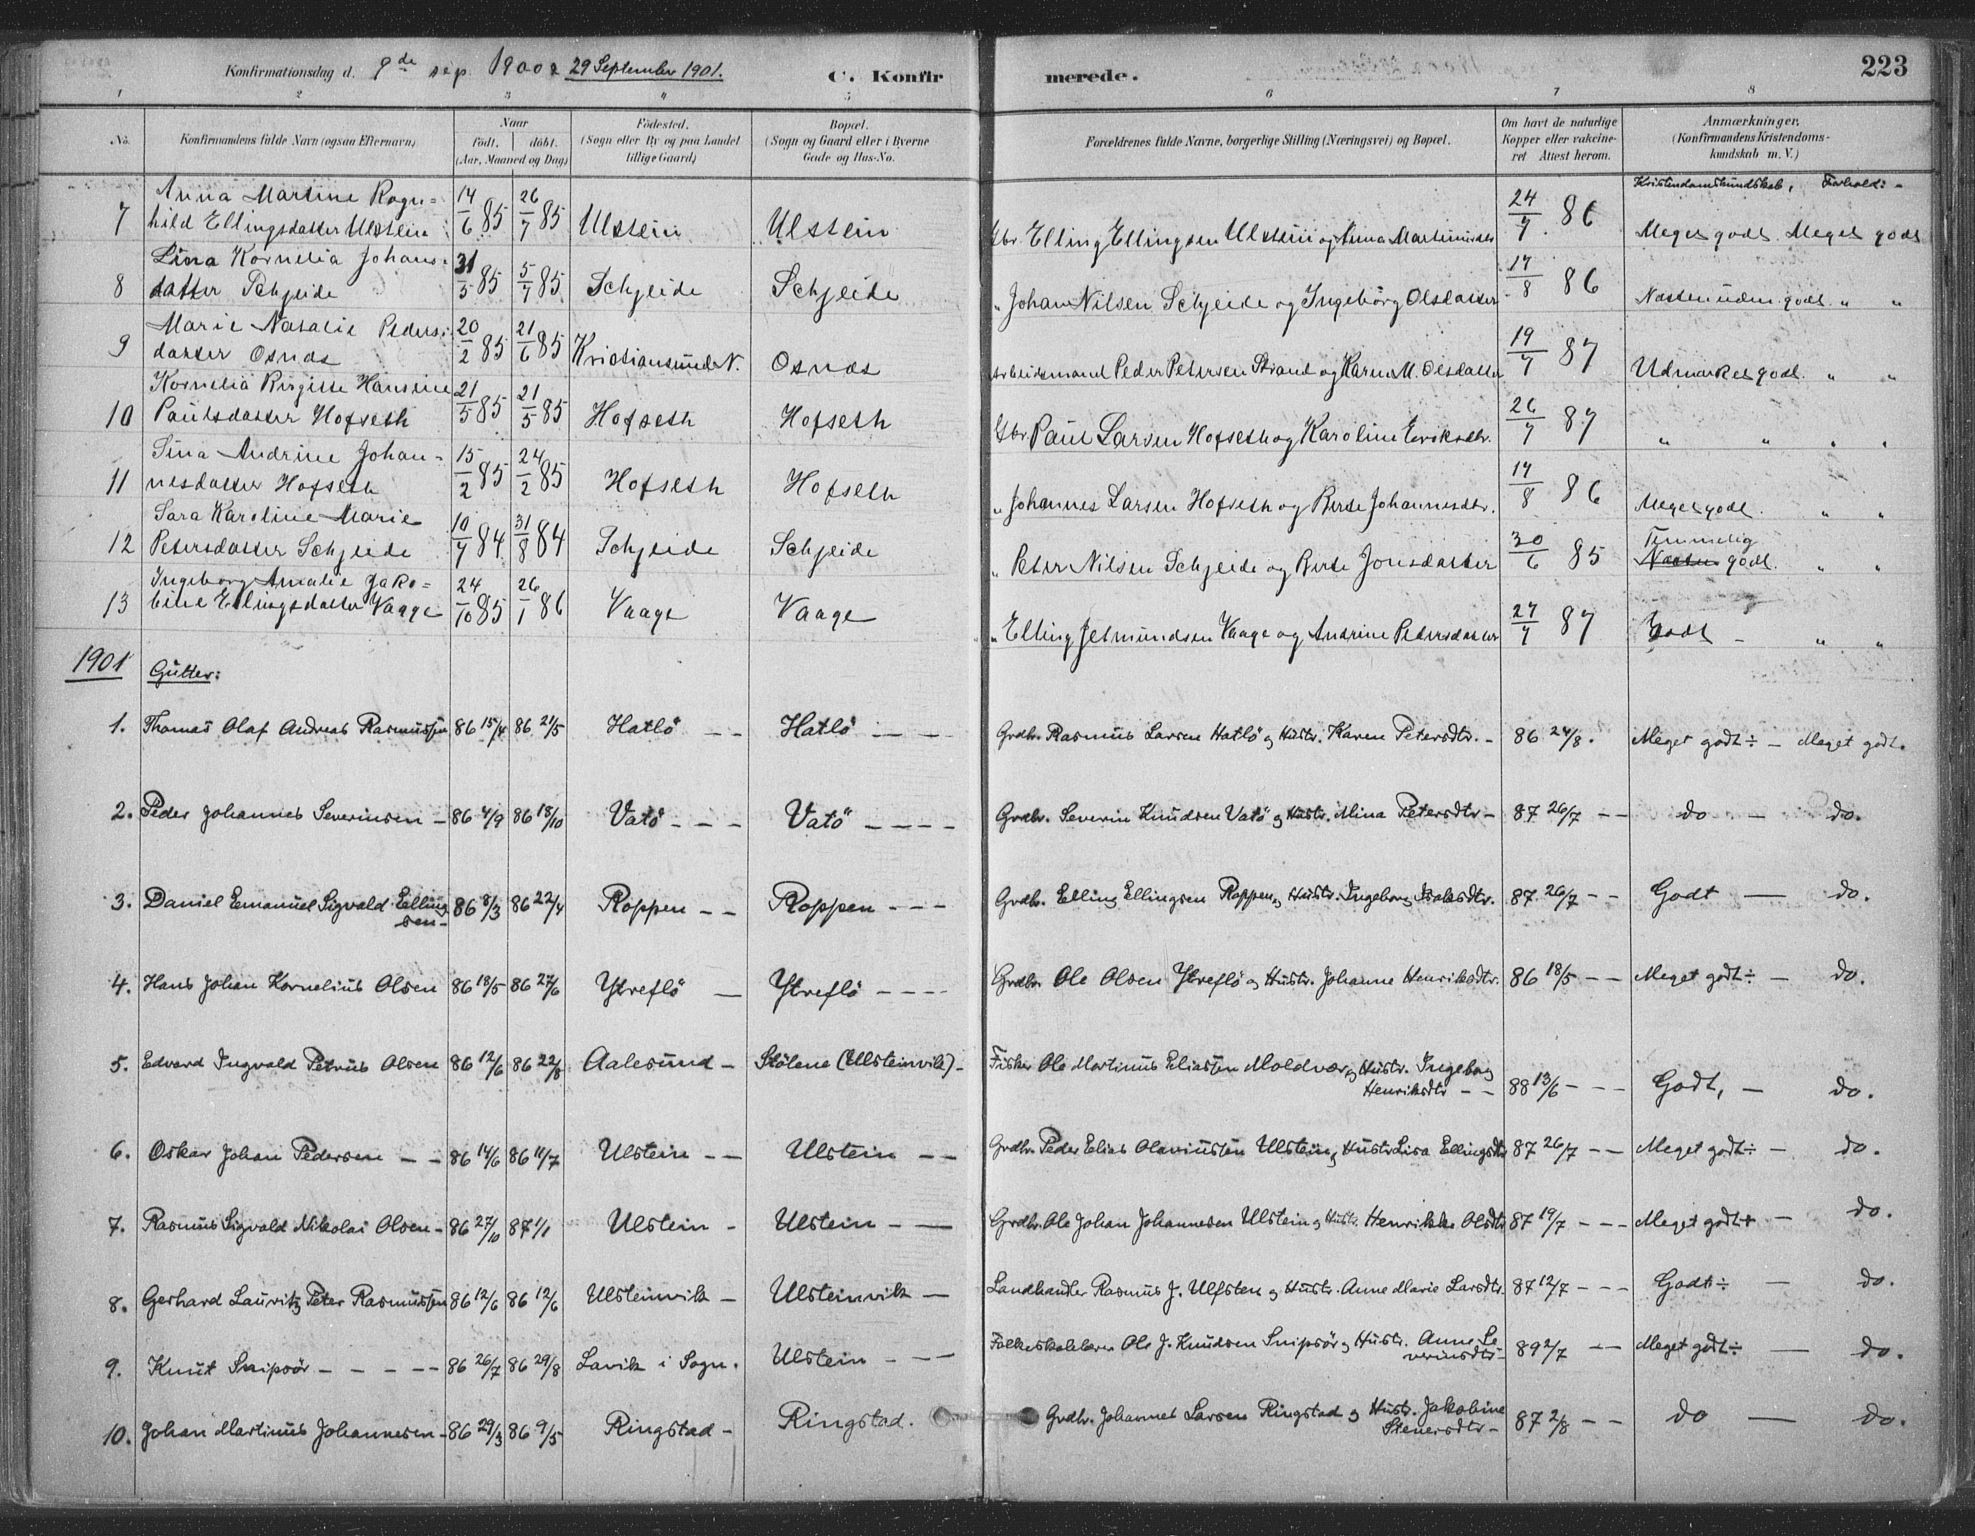 Konfirmationsdag d. 9de sep. 1900 & 29 September 1901. C. Konfirmerede. 223
1 2 3 4 5 6 7 8
No. Konfirmandens fulde Navn (ogsaa Efternavn) Naar født. døbt. (Aar, Maaned og Dag) Fødested. (Sogn eller By og paa Landet tillige Gaard) Bopæl. (Sogn og Gaard eller i Byerne Gade og Hus-No. Forældrenes fulde Navne, borgerlige Stilling (Næringsvei) og Bopæl. Om havt de naturlige Kopper eller vakcineret Attest herom. Anmærkninger, (Konfirmandens Kristendomskundskab m. V.)
Kristendomskundskab, Forhold:
7 Anna Martine Ragnhild Ellingsdatter Ulstein 14/6 85 26/7 85 Ulstein Ulstein Gbr. Elling Ellingsen Ulstein og Anna Martinusdtr 24/7 86 Meget godt. Meget godt
8 Lina Kornelia Johansdatter Schjeide 31/5 85 5/7 85 Schjeide Schjeide " Johan Nilsen Schjeide og Ingebörg Olsdatter 17/8 86 Næsten uden godt. " "
9 Marie Natalie Pedersdatter Osnes 20/2 85 21/6 85 Kristiansund N. Osnes Arbeidsmand Peder Petersen Strand og Karen M. Olsdatter 19/7 87 Udmærket godt. " "
10 Kornelia Birgitte Hansine Paulsdatter Hofseth 21/5 85 21/5 85 Hofseth Hofseth Gbr. Paul Larsen Hofseth og Karoline Eriksdtr. 26/7 87 " " " "
11 Tina Andrine Johannesdatter Hofseth 15/2 85 24/2 85 Hofseth Hofseth " Johannes Larsen Hofseth og Berte Johannesdtr. 17/8 86 Meget godt. " "
12 Sara Karoline Marie Petersdatter Schjeide 10/7 84 31/8 84 Schjeide Schjeide " Peter Nilsen Schjeide og Berte Jonsdatter 30/6 85 Temmelig Næsten godt. " "
13 Ingeborg Amalie Jakobine Ellingsdatter Vaage 24/10 85 26/1 86 Vaage Vaage " Elling Jetmundsen Vaage og Andrine Pedersdatter 27/7 87 Godt - " "
1901 Gutter:
1. Thomas Olaf Andreas Rasmussen 86 15/4 86 21/5 Hatlö - - Hatlö - - Grdbr. Rasmus Larsen Hatlö og Hustr. Karen Petersdtr. - 86 24/8. Meget godt ÷ - Meget godt.
2. Peder Johannes Severinsen - 86 4/9 86 18/10 Vatö - - - Vatö - - - - Grdbr. Severin Knudsen Vatö og Hustr. Mina Petersdtr - 87 26/7 - - do - do.
3. Daniel Emanuel Sigvald Ellingsen - 86 8/3 86 22/4 Roppen - - Roppen - - - Grdbr. Elling Ellingsen Roppen og Hustr. Ingeborg Isaksdtr. 87 26/7 - - Godt - do.
4. Hans Johan Kornelius Olsen 86 18/5 86 27/6 Ytreflö - Ytreflö - - - - Grdbr. Ole Olsen Ytreflö og Hustr. Johanne Henriksdtr. 86 18/5 - - Meget godt ÷ - do.
5. Edvard Ingvald Petrus Olsen 86 12/6 86 22/8 Aalesund - Stölene (Ulsteinvik) - Fisker Ole Martinus Eliassen Moldvær og Hustr. Ingeborg Henriksdtr - - 88 13/6 - - - Godt, - do.
6. Oskar Johan Pedersen - - 86 14/6 86 11/7 Ulstein - - Ulstein - - Grdbr. Peder Elias Olaviussen Ulstein og Hustr Lisa Ellingsdtr 87 26/7 - - Meget godt ÷ - do.
7. Rasmus Sigvald Nikolai Olsen - 86 27/10 87 1/1 Ulstein - Ulstein - - Grdbr. Ole Johan Johannesen Ulstein og Hustr. Henrikke Olsdtr 87 19/7 - - - Meget godt + - do.
8. Gerhard Lauritz Peter Rasmussen 86 12/6 86 12/6 Ulsteinvik - Ulsteinvik - Landhandler Rasmus J. Ulfsten og Hustr. Anne Marie Larsdtr. 87 12/7 - - - Godt ÷ - do.
9. Knut Snipsör - - - - - 86 26/7 86 29/8 Lavik i Sogn. Ulstein - - - Folkeskolelærer Ole J. Knudsen Snipsör og Hustr. Anne Severinsdtr - 89 2/7 - - Meget godt ÷ - do.
10. Johan Martinus Johannesen - 86 29/3 86 9/5 Ringstad - Ringstad. Grdbr. Johannes Larsen Ringstad og Hustr. Jakobine Steversdtr - 87 2/8 - - do - do.